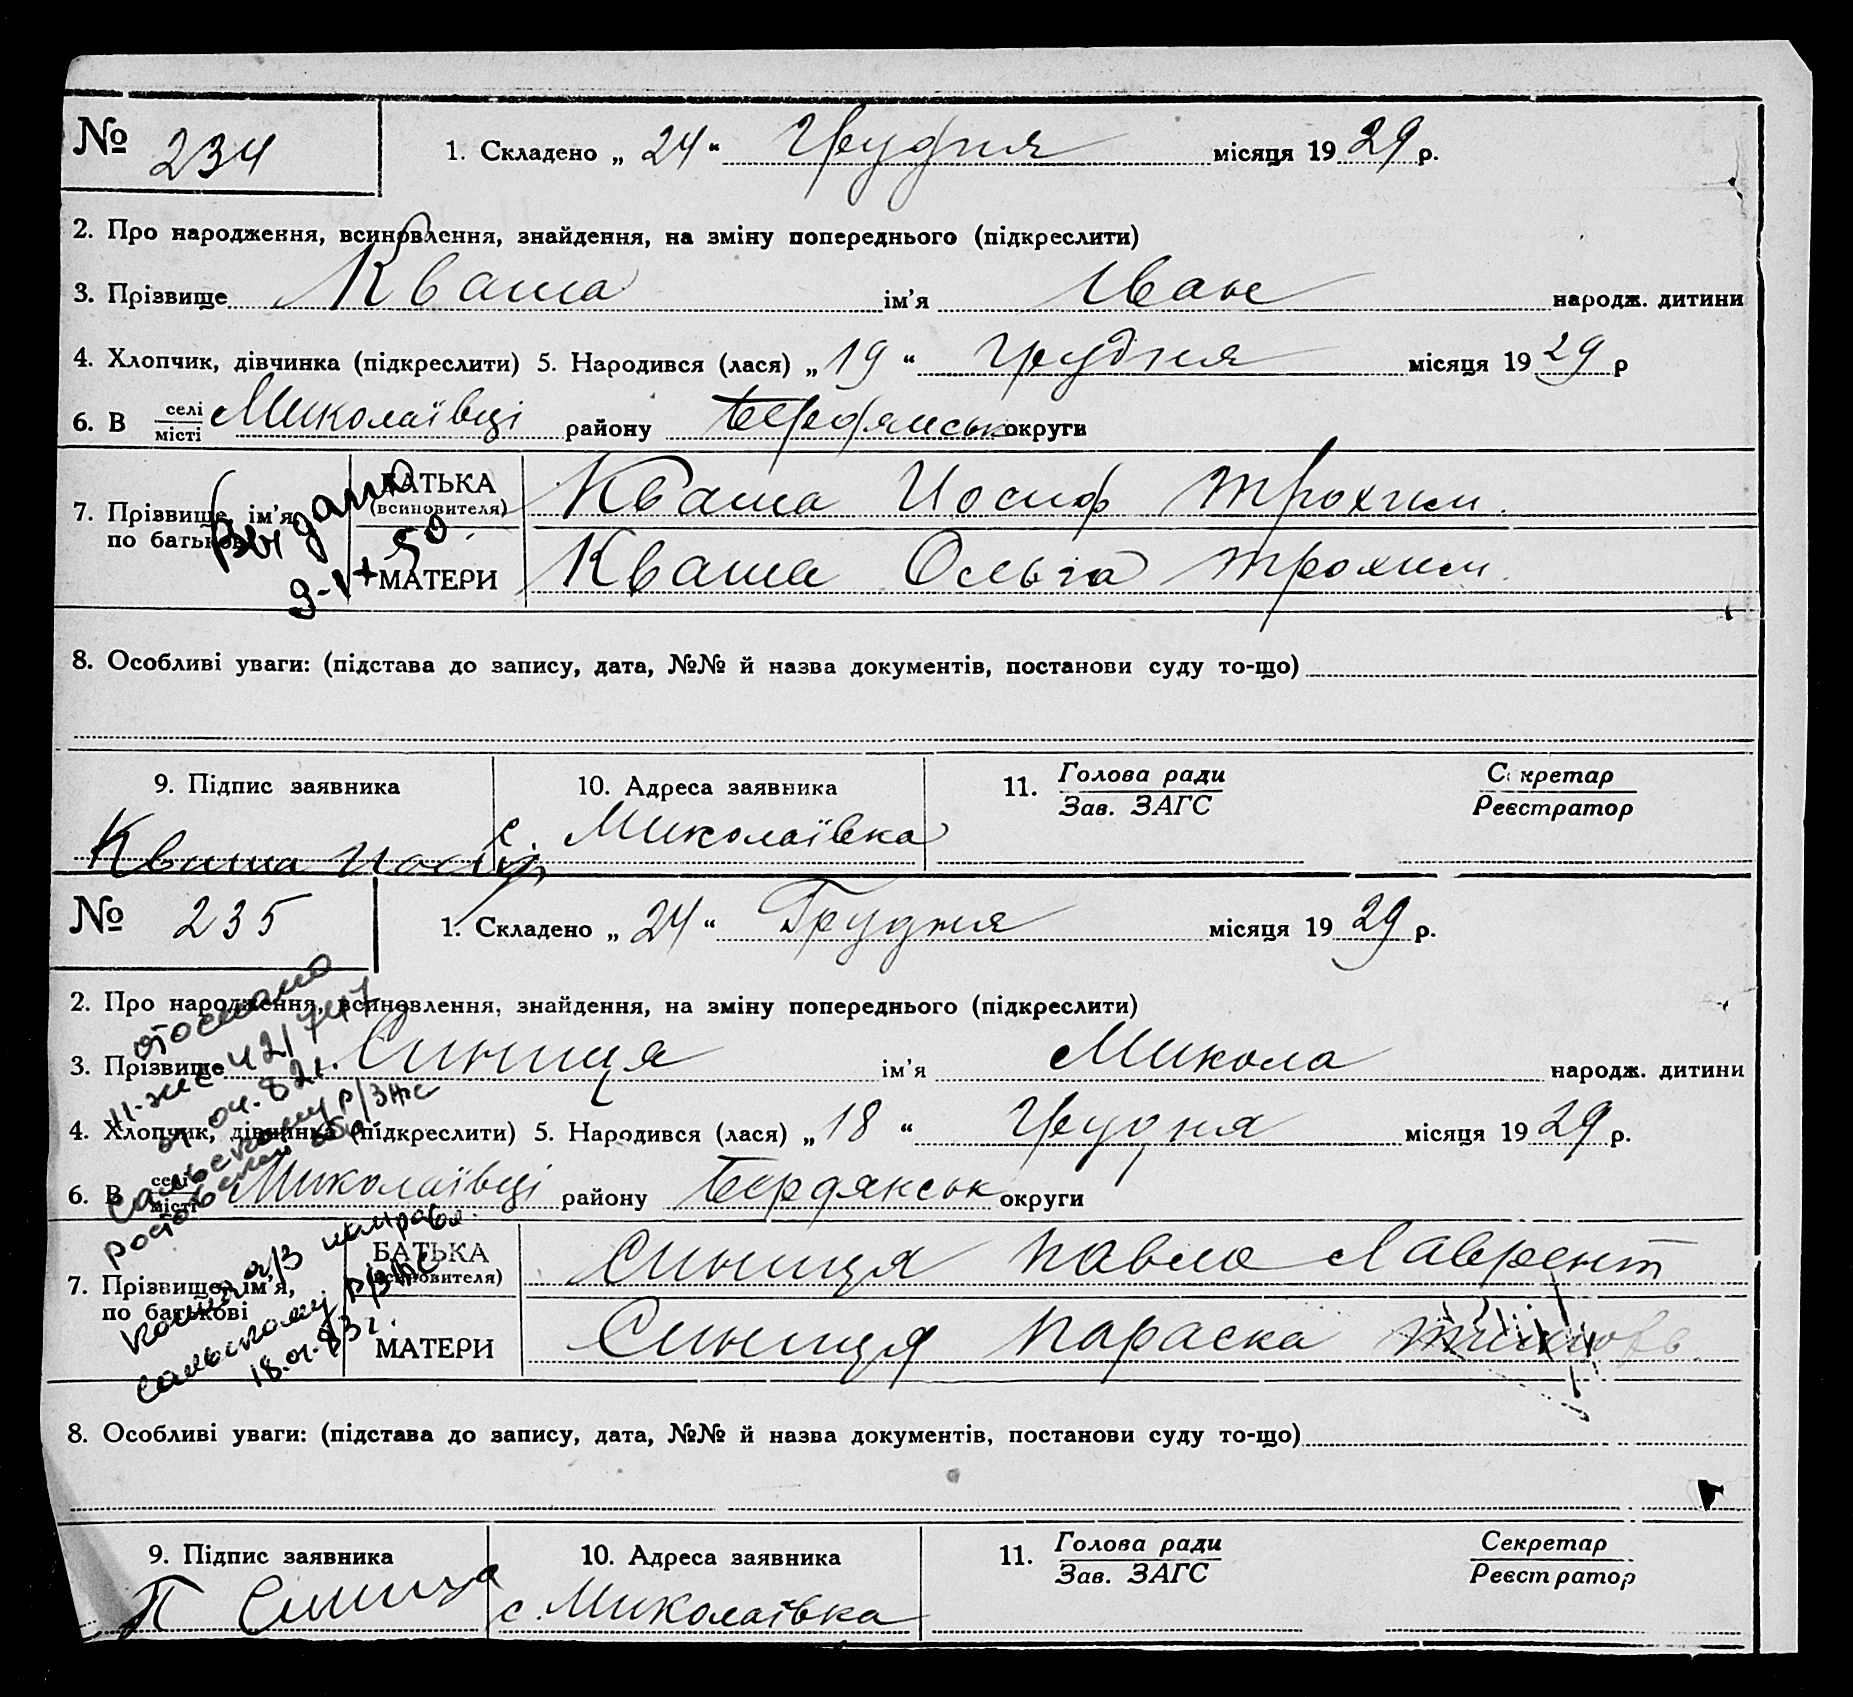 № 234
1. Складено „ 24 “ Грудня місяця 19 29 р.
2. Про народження, всиновлення, знайдення, на зміну попереднього (підкреслити)
3. Прізвище Кваша ім'я Іван народж. дитини
4. Хлопчик, дівчинка (підкреслити) 5. Народився (лася) „ 19 “ Грудня місяця 19 29 р
6. В селі місті Миколаївці району Бердянськ округи
7. Прізвище, ім'я, по батькові
БАТЬКА (всиновителя) Кваша Иосиф Трохим.
МАТЕРИ Кваша Ольга Трохим.
Выдано
50
8. Особливі уваги: (підстава до запису, дата, №№ й назва документів, постанови суду то-що)
9. Підпис заявника
10. Адреса заявника
11. Голова ради Зав. ЗАГС
Секретар Реєстратор
Кваша Иосиф
с. Миколаївка
№ 235
1. Складено „ 24 “ Грудня місяця 19 29 р.
2. Про народження, всиновлення, знайдення, на зміну попереднього (підкреслити)
3. Прізвище Синиця ім'я Микола народж. дитини
4. Хлопчик, дівчинка (підкреслити) 5. Народився (лася) „ 18 “ Грудня місяця 19 29 р.
6. В селі місті Миколаївці району Бердянськ округи
7. Прізвище, ім'я, по батькові
БАТЬКА (всиновителя) Синиця Павло Лаврент
МАТЕРИ Синиця Параска
отослано
сальскому р/ЗАГС
копия а/з направл.
сальскому РЗАГС
18.01.83г.
8. Особливі уваги: (підстава до запису, дата, №№ й назва документів, постанови суду то-що)
9. Підпис заявника
10. Адреса заявника
11. Голова ради Зав. ЗАГС
Секретар Реєстратор
П Синиця
с. Миколаївка